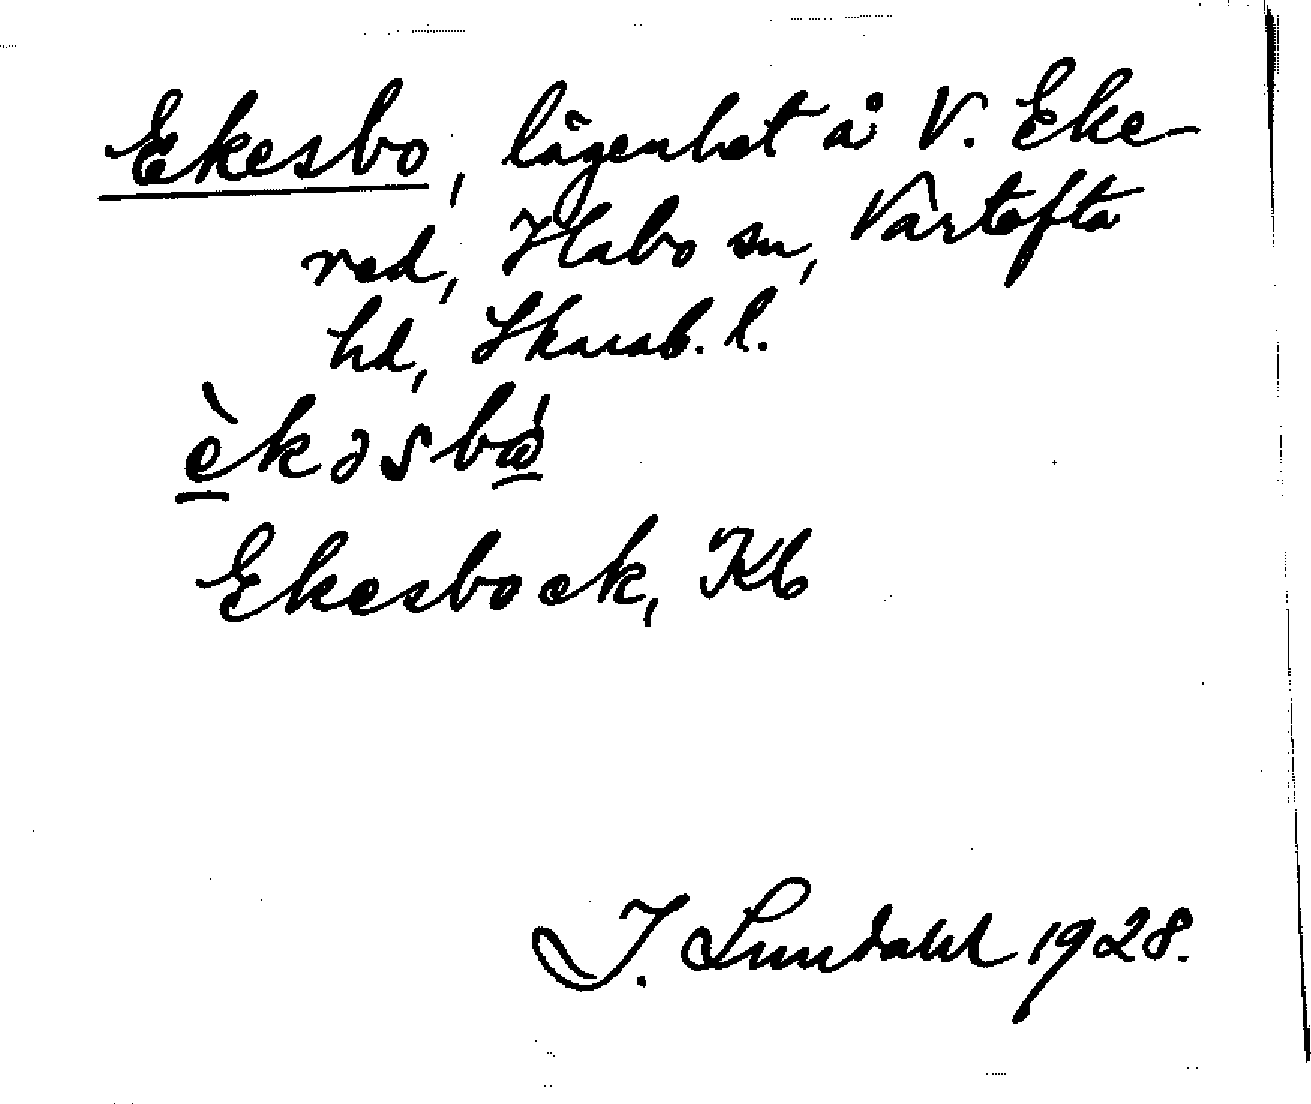 Ekesbo, lägenhet å V. Eke-
red, Habo sn, Vartofta
hd, Skarab. l.
è̠kəsbǻ̠
Ekesboek, Kb
I. Lundahl 1928.